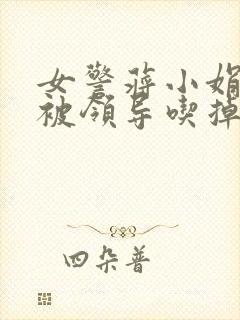 女警蒋小娟
被领导喫掉
四朵普